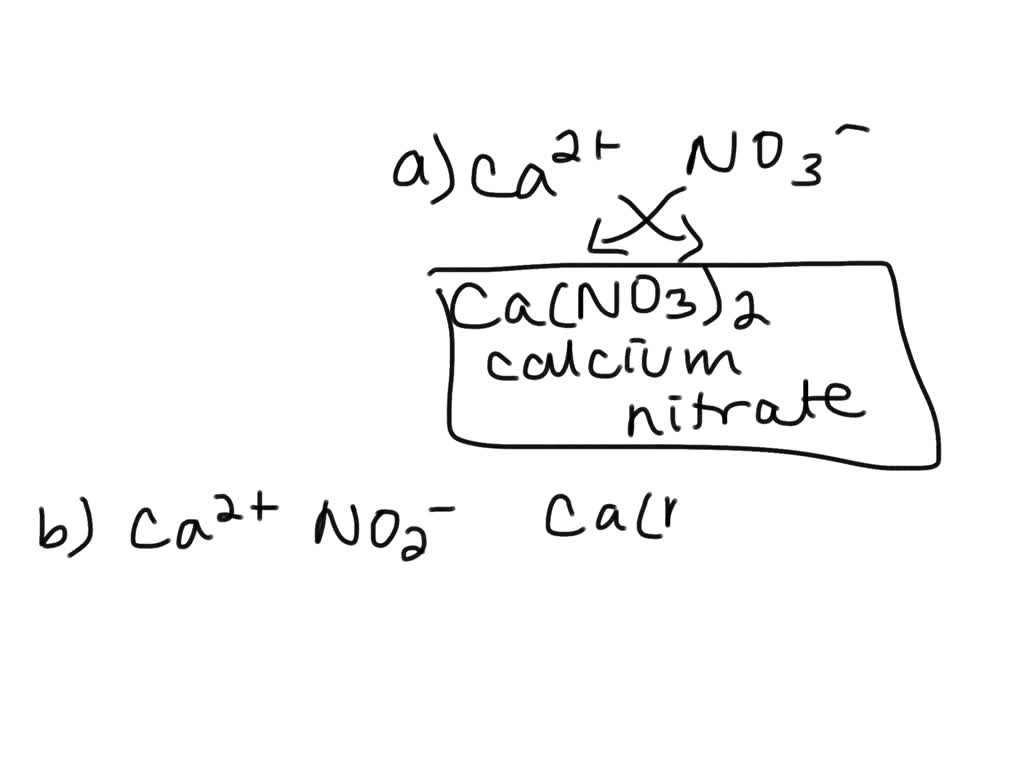 a) Ca²⁺ NO₃⁻
Ca(NO₃)₂
calcium
nitrate
b) Ca²⁺ NO₂⁻ Ca(